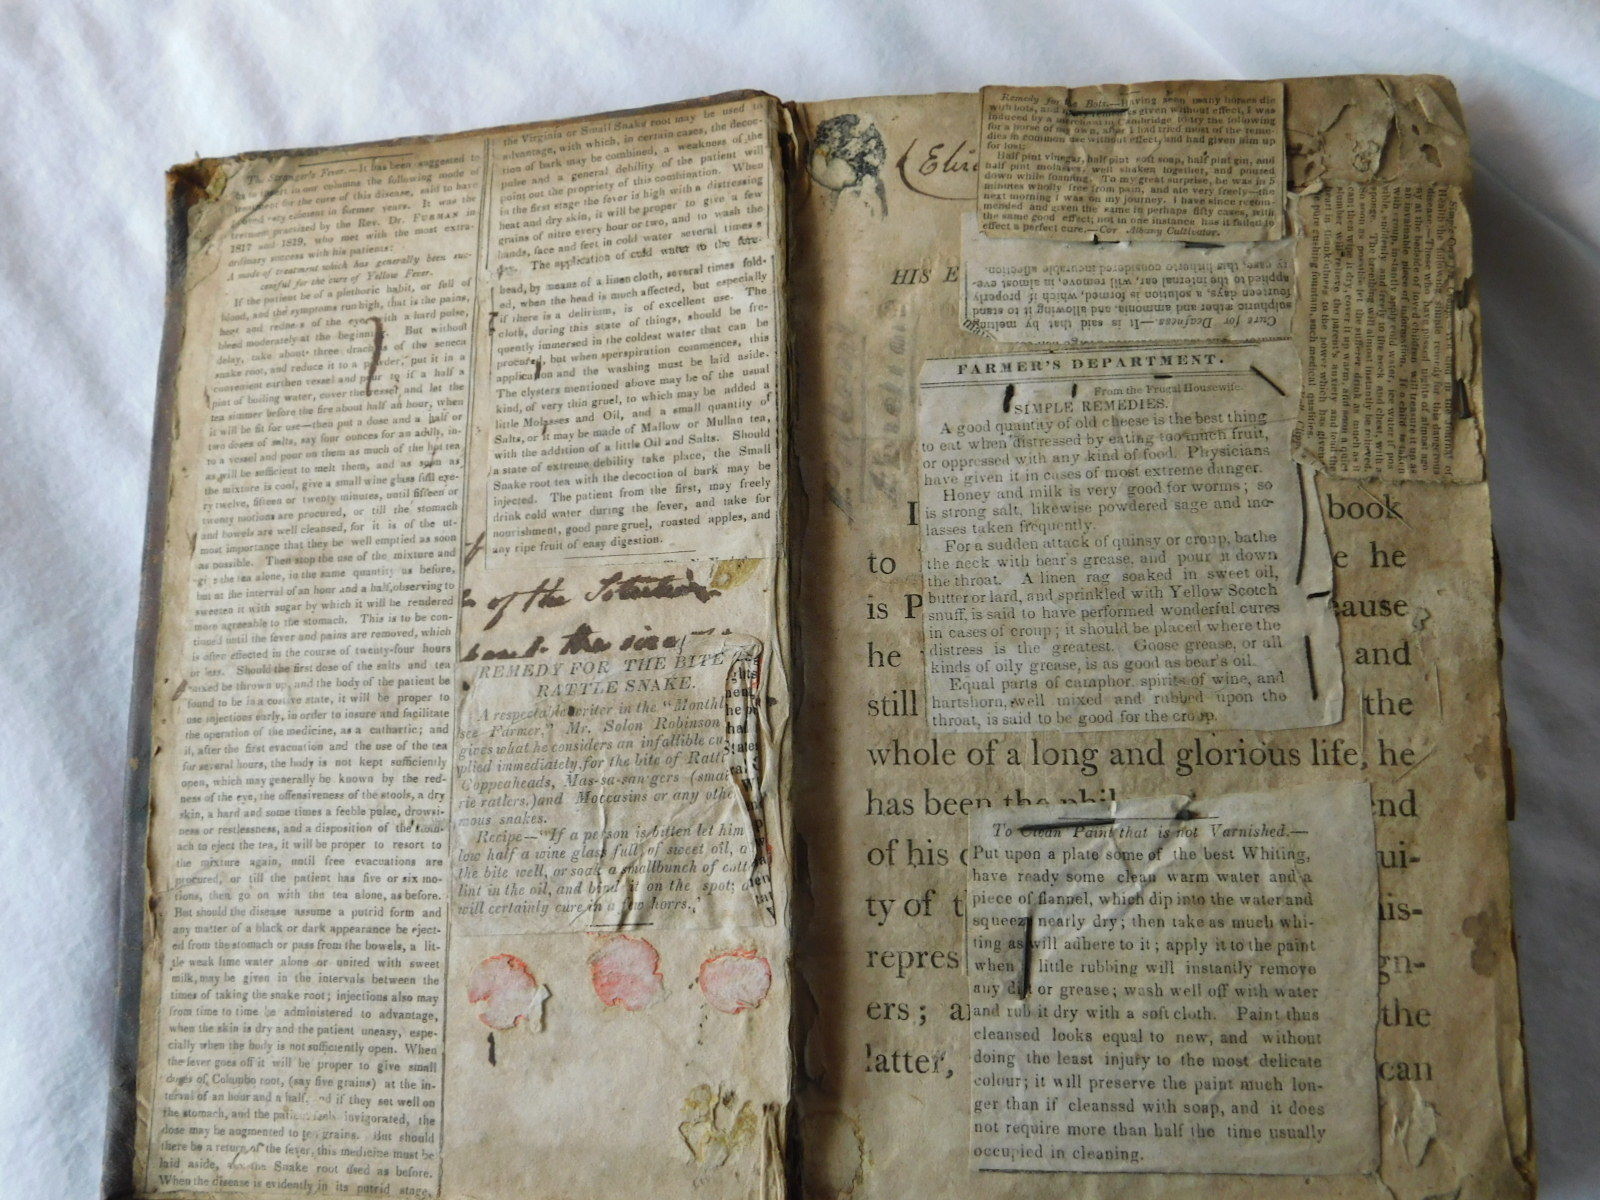 The Stranger's Fever.—It has been suggested to
us to insert in our columns the following mode of
treatment for the cure of this disease, said to have
proved very efficient in former years. It was the
treatment practised by the Rev. Dr. FURMAN in
1817 and 1819, who met with the most extra-
ordinary success with his patients:
A mode of treatment which has generally been suc-
cessful for the cure of Yellow Fever.
If the patient be of a plethoric habit, or full of
blood, and the symptoms run high, that is the pains,
heat and redness of the eyes with a hard pulse,
bleed moderately at the beginning. But without
delay, take about three drachms of the seneca
snake root, and reduce it to a powder, put it in a
convenient earthen vessel and pour to it half a
pint of boiling water, cover the vessel and let the
tea simmer before the fire about half an hour, when
it will be fit for use—then put a dose and a half or
two doses of salts, say four ounces for an adult, in-
to a vessel and pour on them as much of the hot tea
as will be sufficient to melt them, and as soon as
the mixture is cool, give a small wine glass full eve-
ry twelve, fifteen or twenty minutes, until fifteen or
twenty motions are procured, or till the stomach
and bowels are well cleansed, for it is of the ut-
most importance that they be well emptied as soon
as possible. Then stop the use of the mixture and
give the tea alone, in the same quantity as before,
but at the interval of an hour and a half, observing to
sweeten it with sugar by which it will be rendered
more agreeable to the stomach. This is to be con-
tinued until the fever and pains are removed, which
is often effected in the course of twenty-four hours
or less. Should the first dose of the salts and tea
mixed be thrown up, and the body of the patient be
found to be in a costive state, it will be proper to
use injections early, in order to insure and facilitate
the operation of the medicine, as a cathartic; and
if, after the first evacuation and the use of the tea
for several hours, the body is not kept sufficiently
open, which may generally be known by the red-
ness of the eye, the offensiveness of the stools, a dry
skin, a hard and some times a feeble pulse, drowsi-
ness or restlessness, and a disposition of the stom-
ach to eject the tea, it will be proper to resort to
the mixture again, until free evacuations are
procured, or till the patient has five or six mo-
tions, then go on with the tea alone, as before.
But should the disease assume a putrid form and
any matter of a black or dark appearance be eject-
ed from the stomach or pass from the bowels, a lit-
tle weak lime water alone or united with sweet
milk, may be given in the intervals between the
times of taking the snake root; injections also may
from time to time be administered to advantage,
when the skin is dry and the patient uneasy, espe-
cially when the body is not sufficiently open. When
the fever goes off it will be proper to give small
doses of Columbo root, (say five grains) at the in-
terval of an hour and a half, and if they set well on
the stomach, and the patient feels invigorated, the
dose may be augmented to ten grains. But should
there be a return of the fever, this medicine must be
laid aside, and the Snake root used as before.
When the disease is evidently in its putrid stage,
the Virginia or Small Snake root may be used to
advantage, with which, in certain cases, the decoc-
tion of bark may be combined, a weakness of the
pulse and a general debility of the patient will
point out the propriety of this combination. When
in the first stage the fever is high with a distressing
heat and dry skin, it will be proper to give a few
grains of nitre every hour or two, and to wash the
hands, face and feet in cold water several times a
day. The application of cold water to the fore-
head, by means of a linen cloth, several times fold-
ed, when the head is much affected, but especially
if there is a delirium, is of excellent use. The
cloth, during this state of things, should be fre-
quently immersed in the coldest water that can be
procured, but when perspiration commences, this
application and the washing must be laid aside.
The clysters mentioned above may be of the usual
kind, of very thin gruel, to which may be added a
little Molasses and Oil, and a small quantity of
Salts, or it may be made of Mallow or Mullan tea,
with the addition of a little Oil and Salts. Should
a state of extreme debility take place, the Small
Snake root tea with the decoction of bark may be
injected. The patient from the first, may freely
drink cold water during the fever, and take for
nourishment, good pure gruel, roasted apples, and
any ripe fruit of easy digestion.
of the
the
REMEDY FOR THE BITE
RATTLE SNAKE.
A respectable writer in the "Monthl
see Farmer," Mr. Solon Robinson
gives what he considers an infallible cu
plied immediately for the bite of Rattl
Coppeaheads, Mas-sa-sau'gers (smal
rie ratlers,) and Moccasins or any othe
mous snakes.
Recipe—"If a person is bitten let him
low half a wine glass full of sweet oil, a
the bite well, or soak a smallbunch of cott
lint in the oil, and bind it on the spot; a
will certainly cure in a few horrs.'
Remedy for the Bots.—Having seen many horses die
with bots, and the remedies given without effect, I was
induced by a merchant in Cambridge to try the following
for a horse of my own, after I had tried most of the reme-
dies in common use without effect, and had given him up
for lost:
Half pint vinegar, half pint soft soap, half pint gin, and
half pint molasses, well shaken together, and poured
down while foaming. To my great surprise, he was in 5
minutes wholly free from pain, and ate very freely—the
next morning I was on my journey. I have since recom-
mended and given the same in perhaps fifty cases, with
the same good effect; not in one instance has it failed to
effect a perfect cure.—Cor. Albany Cultivator.
Eliz
HIS E
Cure for Deafness.—It is said that by melting
sulphuric ether and ammonia, and allowing it to stand
fourteen days, a solution is formed, which if properly
applied to the internal ear, will remove, in almost eve-
ry case, this hitherto considered incurable affection.
FARMER'S DEPARTMENT.
From the Frugal Housewife.
SIMPLE REMEDIES.
A good quantity of old cheese is the best thing
to eat when distressed by eating too much fruit,
or oppressed with any kind of food. Physicians
have given it in cases of most extreme danger.
Honey and milk is very good for worms; so
is strong salt, likewise powdered sage and mo-
lasses taken frequently.
For a sudden attack of quinsy or croup, bathe
the neck with bear's grease, and pour it down
the throat. A linen rag soaked in sweet oil,
butter or lard, and sprinkled with Yellow Scotch
snuff, is said to have performed wonderful cures
in cases of croup; it should be placed where the
distress is the greatest. Goose grease, or all
kinds of oily grease, is as good as bear's oil.
Equal parts of camphor, spirits of wine, and
hartshorn, well mixed and rubbed upon the
throat, is said to be good for the croup.
I book
to e he
is P cause
he and
still the
whole of a long and glorious life, he
has been the phil end
of his qui-
ty of t his-
repres gn-
ers; a the
latter, can
To Clean Paint that is not Varnished.—
Put upon a plate some of the best Whiting,
have ready some clean warm water and a
piece of flannel, which dip into the water and
squeez nearly dry; then take as much whi-
ting as will adhere to it; apply it to the paint
when little rubbing will instantly remove
any dirt or grease; wash well off with water
and rub it dry with a soft cloth. Paint thus
cleansed looks equal to new, and without
doing the least injury to the most delicate
colour; it will preserve the paint much lon-
ger than if cleanssd with soap, and it does
not require more than half the time usually
occupied in cleaning.